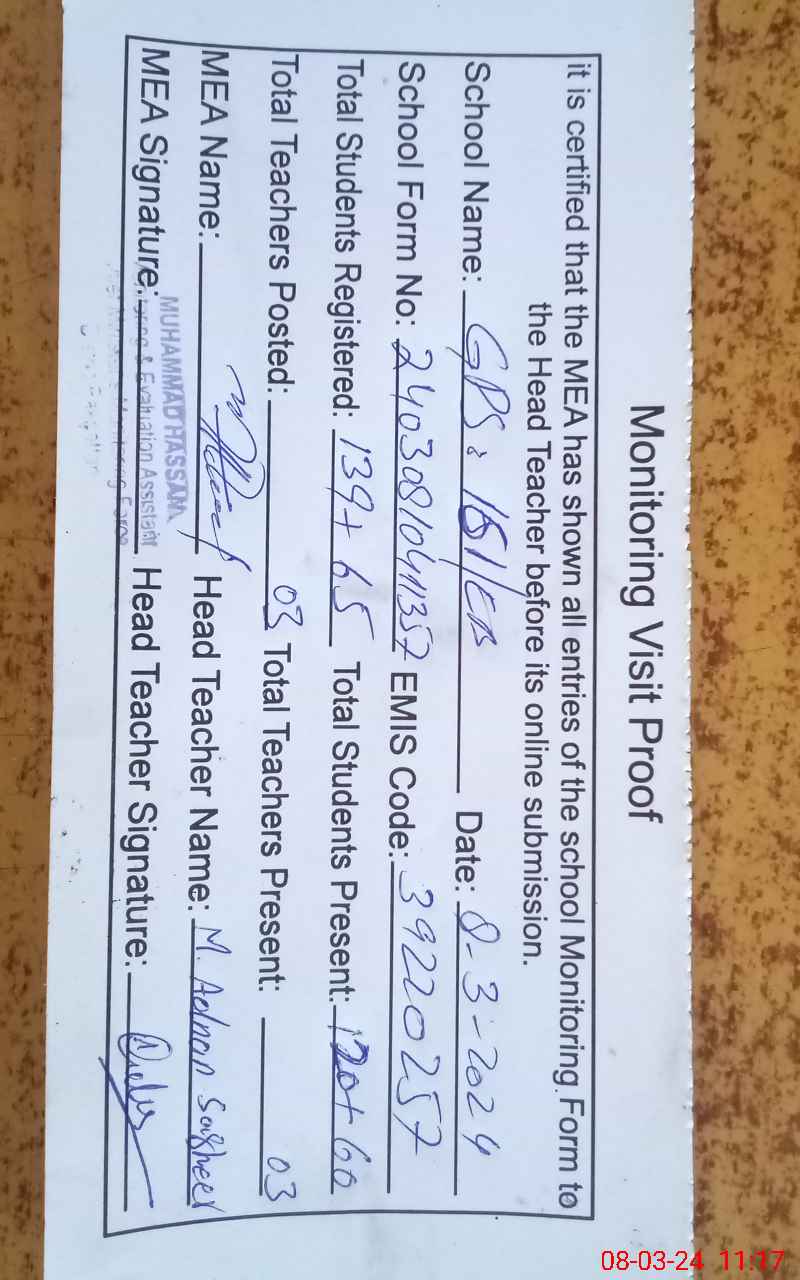 Monitoring Visit Proof
it is certified that the MEA has shown all entries of the school Monitoring Form to
the Head Teacher before its online submission.
School Name: GPS: 151/EB Date: 8-3-2024
School Form No: 24030810411357 EMIS Code: 39220257
Total Students Registered: 139+65 Total Students Present: 120+60
Total Teachers Posted: 03 Total Teachers Present: 03
MEA Name: Head Teacher Name: M. Adnan
MUHAMMAD HASSAM
MEA Signature: Head Teacher Signature:
Monitoring & Evaluation Assistant
Monitoring Force
08-03-24 11:17